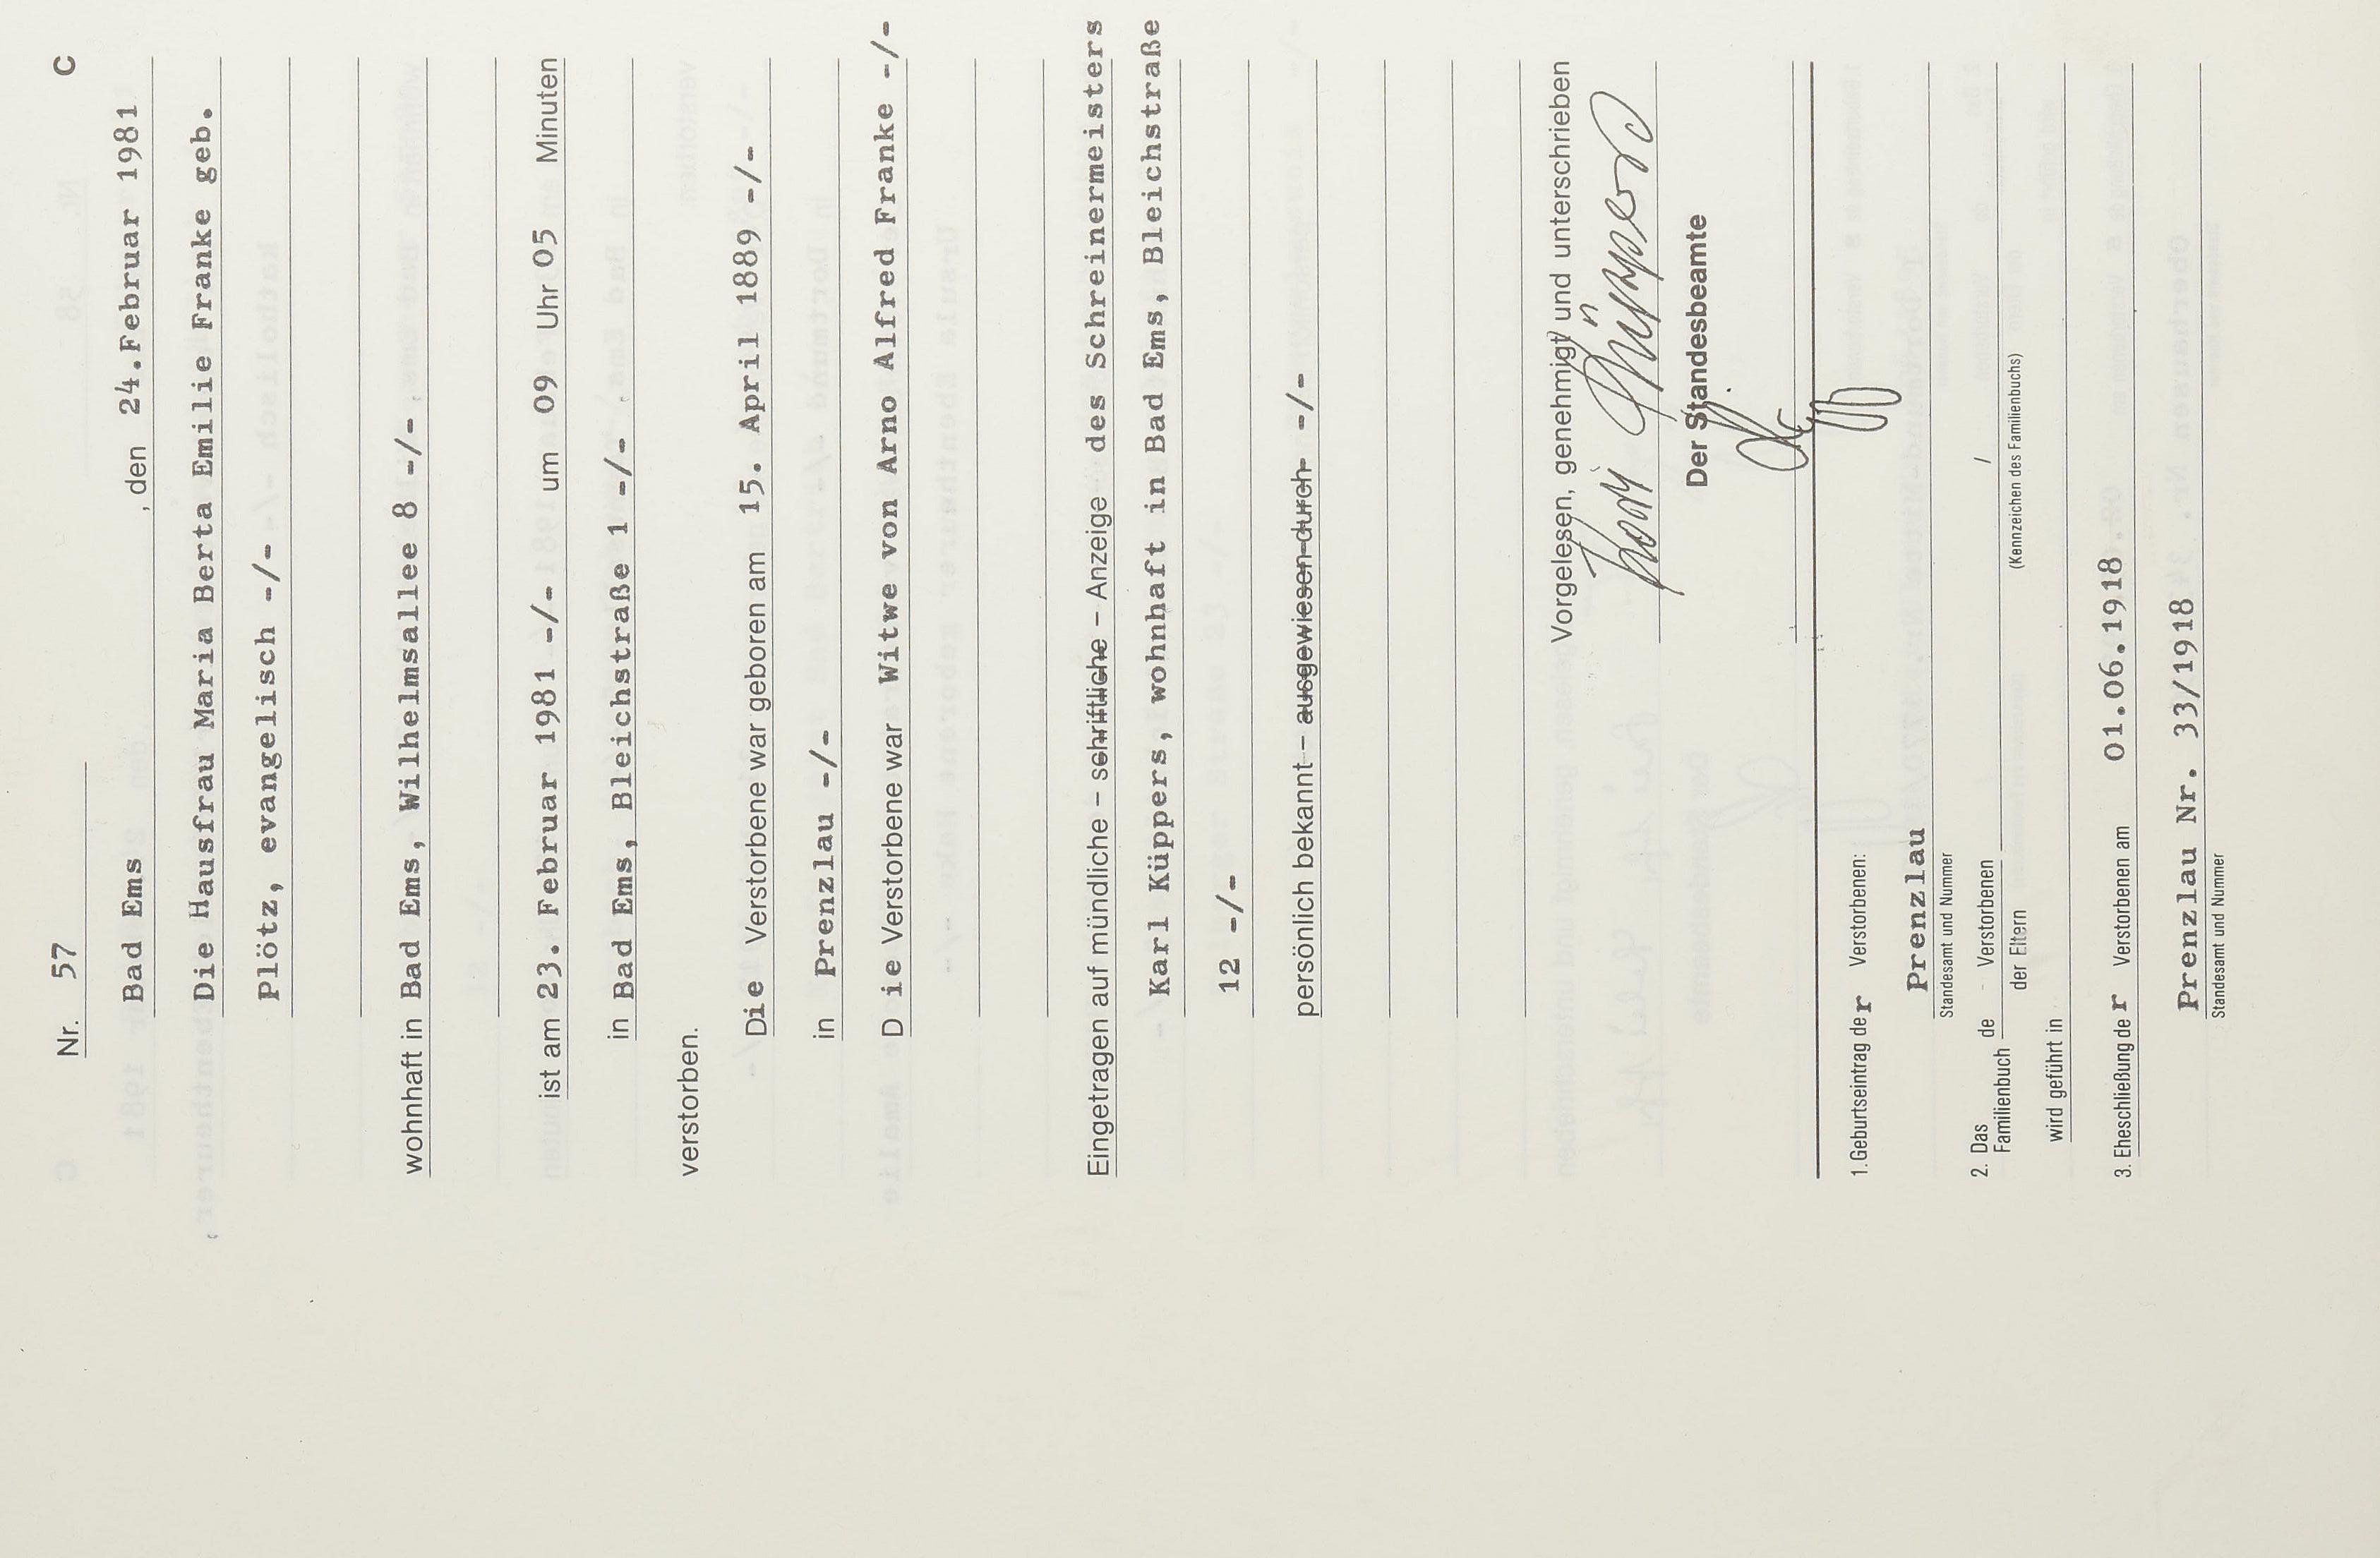 Nr. 57 C
Bad Ems , den 24.Februar 1981
Die Hausfrau Maria Berta Emilie Franke geb.
Plötz, evangelisch -/-
wohnhaft in Bad Ems, Wilhelmsallee 8 -/-
ist am 23. Februar 1981 -/- um 09 Uhr 05 Minuten
in Bad Ems, Bleichstraße 1 -/-
verstorben.
Die Verstorbene war geboren am 15. April 1889 -/-
in Prenzlau -/-
D ie Verstorbene war Witwe von Arno Alfred Franke -/-
Eingetragen auf mündliche – schriftliche – Anzeige des Schreinermeisters
Karl Küppers, wohnhaft in Bad Ems, Bleichstraße
12 -/-
persönlich bekannt – ausgewiesen durch -/-
Vorgelesen, genehmigt und unterschrieben
Karl Küppers
Der Standesbeamte
1. Geburtseintrag der Verstorbenen:
Prenzlau
Standesamt und Nummer
2. Das Familienbuch de Verstorbenen /
der Eltern (Kennzeichen des Familienbuchs)
wird geführt in
3. Eheschließung der Verstorbenen am 01.06.1918
Prenzlau Nr. 33/1918
Standesamt und Nummer